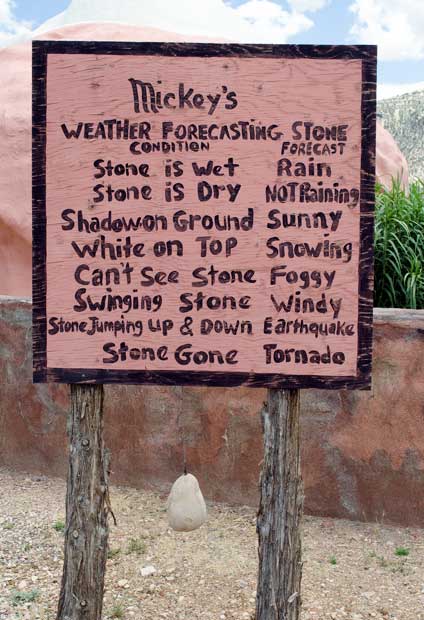 Mickey's
WEATHER FORECASTING STONE
CONDITION FORECAST
Stone is Wet Rain
Stone is Dry NOT Raining
Shadow on Ground Sunny
White on Top Snowing
Can't See Stone Foggy
Swinging Stone Windy
Stone Jumping Up & Down Earthquake
Stone Gone Tornado